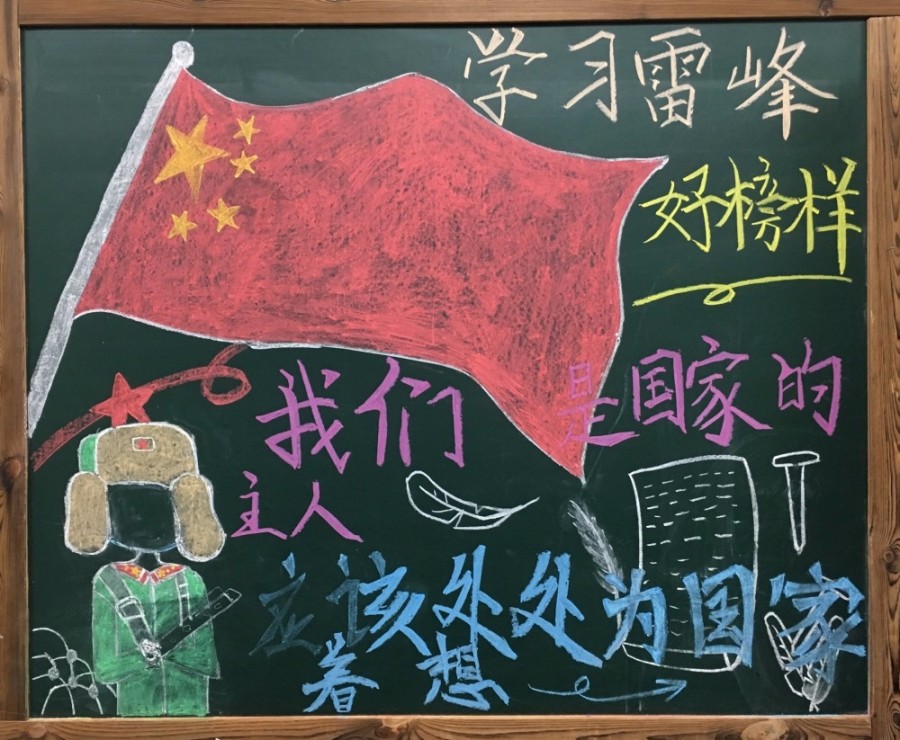 学习雷峰
好榜样
我们是国家的
主人
应该处处为国家
着想